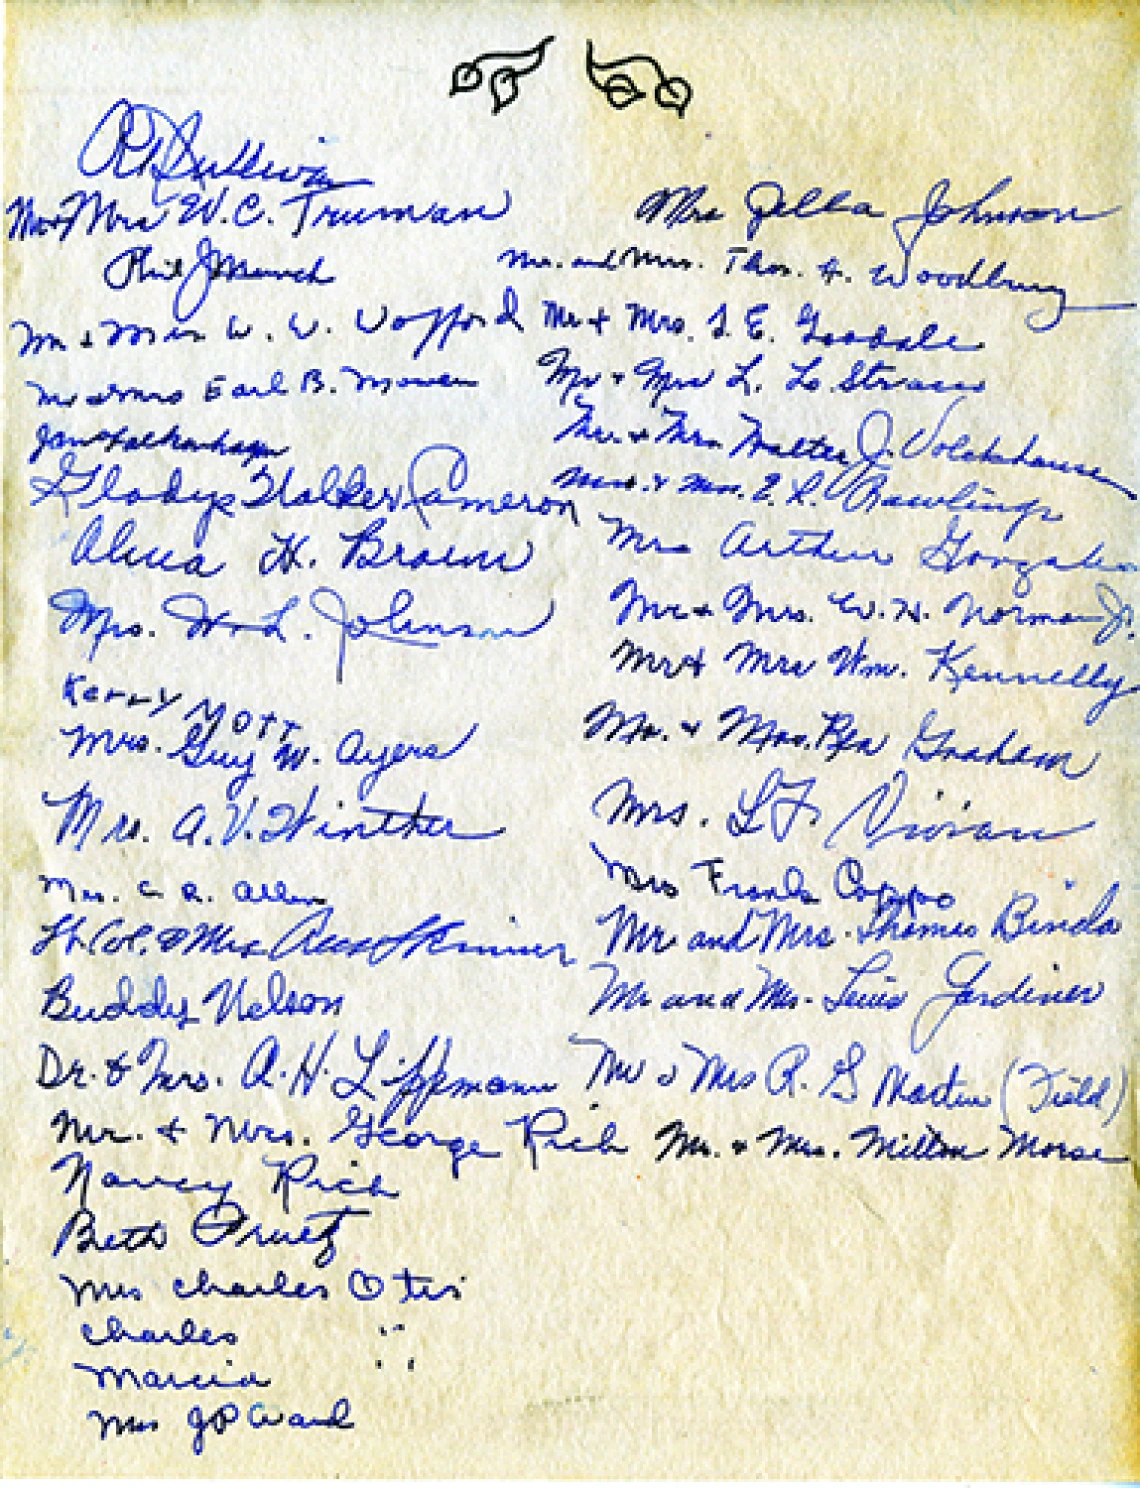 R Sullivan
Mr + Mrs W. C. Truman
Phil J Munch
Mr & Mrs W. W. Wofford
Mr and Mrs Earl B.
Gladys Walker Cameron
Alma H. Brown
Mrs. W. L. Johnson
Kerry Mott
Mrs. Guy W. Ayers
Mrs. A. V. Winther
Mrs. C. R. Allen
Lt. Col. & Mrs
Buddy Nelson
Dr. & Mrs. A. H. Lippmann
Mr. & Mrs. George Rich
Nancy Rich
Beth Pruetz
Mrs Charles Otis
Charles "
Marcia "
Mrs J P Ward
Mrs Zella Johnson
Mr. and Mrs. Thos. H. Woodbury
Mr + Mrs. E. Goodale
Mr + Mrs L. Strauss
Mr. + Mrs. Walter J. Volckhausen
Mr. & Mrs. R. Rawlings
Mrs Arthur Gonzales
Mr + Mrs. W. H. Norman Jr.
Mr + Mrs Wm. Kennelly
Mr. + Mrs. Graham
Mrs. L F. Vivian
Mrs Frank Coppo
Mr and Mrs. Thomas Binda
Mr and Mrs. Lewis Gardiner
Mr & Mrs R. G Martin (Field)
Mr. & Mrs. Milton Morse